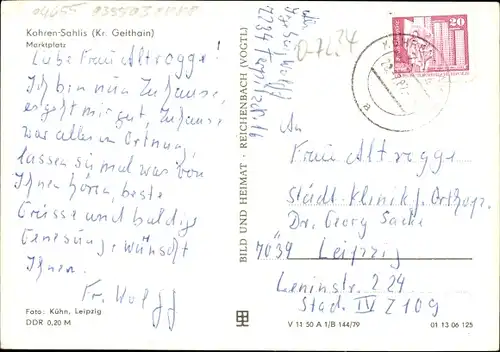 04655
Kohren-Sahlis (Kr. Geithain)
Marktplatz
Liebe Frau Altrogge!
Ich bin nun Zuhause,
es geht mir gut, Zuhause
war alles in Ortnung,
lassen sie mal was von
Ihnen hören, beste
Grüsse und baldige
Genesung wünscht
Ihnen.
Fr. Wolff
Foto: Kühn, Leipzig
DDR 0,20 M
BILD UND HEIMAT · REICHENBACH (VOGTL)
20
An
Frau Altrogge
Städt. Klinik f. Orthop.
Dr. Georg Sacke
7039 Leipzig
Leninstr. 224
Stad. IV Z 109
V 11 50 A 1/B 144/79
01 13 06 125